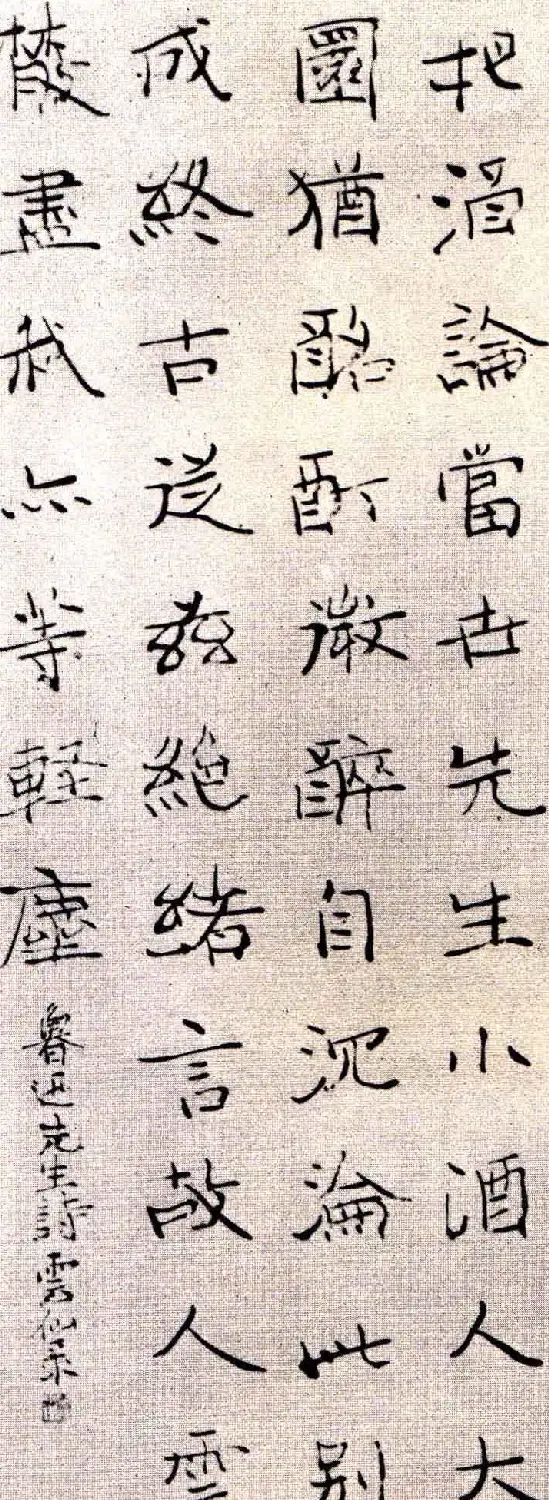 把酒論當世先生小酒人大
圜猶酩酊微醉自沉淪此別
成終古從茲絕緒言故人雲
散盡我亦等輕塵
魯迅先生詩